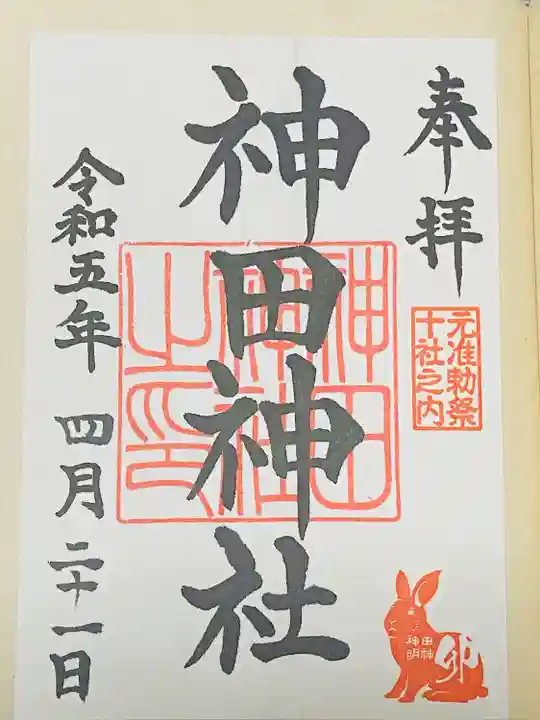 奉拝
元准勅祭
十社之内
神田神社
神田
神社
之印
令和五年 四月 二十一日
卯
田神
神明